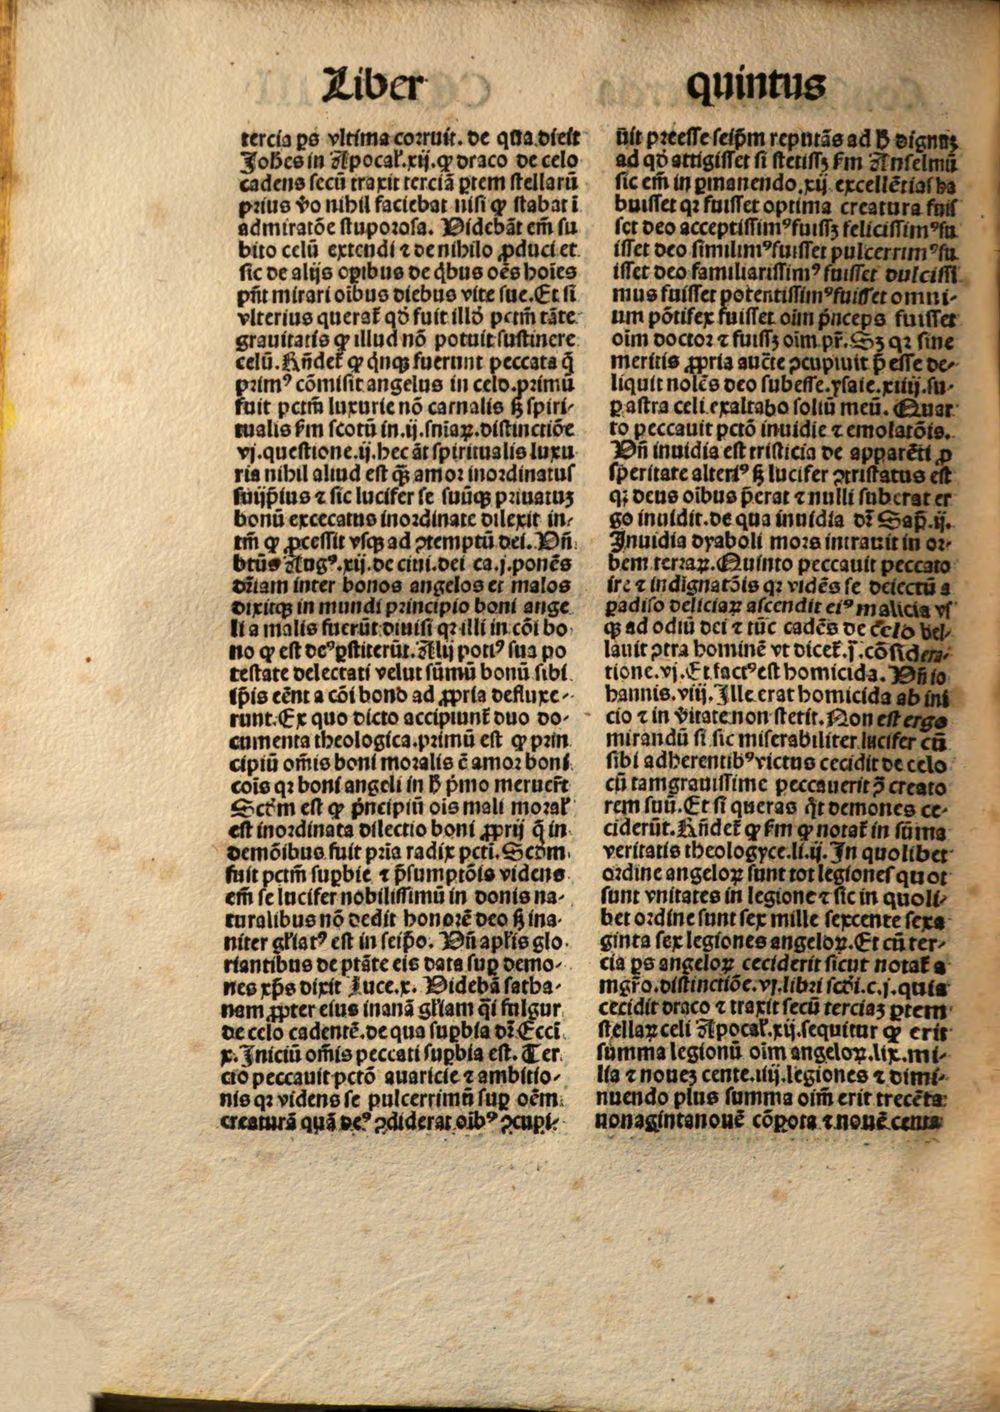 Liber quintus
tercia ꝑs vltima corruit. de qua dicit
Johēs in Apocal̄.xij.ꝙ draco de celo
cadens secū traxit terciā ꝑtem stellarū
prius v̄o nihil faciebat nisi ꝙ stabat ī
admiratōe stuporosa. Videbāt em̄ su
bito celū extendi ⁊ de nihilo ꝓduci et
sic de alijs oꝑibus de q̄bus oēs hoīes
pn̄t mirari oībus diebus vite sue. Et si
vlterius querat̄ qd̄ fuit illd̄ pctm̄ tāte
grauitatis ꝙ illud nō potuit sustinere
celū. Rn̄det̄ ꝙ qn̄qꝫ fuerunt peccata q̄
primꝰ cōmisit angelus in celo. primū
fuit pctm̄ luxurie nō carnalis sꝫ spiri-
tualis ẜm scotū in.ij.sniaꝝ.distinctiōe
vj.questione.ij.hec āt spiritualis luxu
ria nihil aliud est qꝫ amor inordinatus
suiip̄ius ⁊ sic lucifer se suūqꝫ priuatuꝫ
bonū excecatus inordinate dilexit in-
tm̄ ꝙ ꝓcessit vsqꝫ ad ꝯtemptū dei. Vn̄
btūs Augꝰ.xij.de ciui.dei ca.j.ponēs
dr̄iam inter bonos angelos et malos
dixitqꝫ in mundi principio boni ange
li a malis fuerūt diuisi qꝛ illi in cōi bo-
no ꝙ est deꝰ ꝑstiterūt. Alij potiꝰ sua po
testate delectati velut sūmū bonū sibi
ip̄is eēnt a cōi bono ad ꝓpria defluxe-
runt. Ex quo dicto accipiunt̄ duo do-
cumenta theologica. primū est ꝙ prin
cipiū om̄is boni moralis ē amor boni
cois qꝛ boni angeli in ħ p̄mo meruer̄t
Scd̄m est ꝙ p̄ncipiū ois mali moral̄
est inordinata dilectio boni ꝓprij q̄ in
demōibus fuit pria radix pcti. Scdm
fuit pctm̄ suꝑbie ⁊ p̄sumptōis videns
em̄ se lucifer nobilissimū in donis na-
turalibus nō dedit honorē deo sꝫ ina-
niter gl̄iatꝰ est in seip̄o. Vn̄ apl̄is glo-
riantibus de ptāte eis data suꝑ demo-
nes xp̄s dixit Luce.x. Videbā satha-
nam ꝓpter eius inanā gl̄iam q̄i fulgur
de celo cadentē. de qua suꝑbia dr̄. Ecci
x. Iniciū om̄is peccati suꝑbia est. Ter
cio peccauit pctō auaricie ⁊ ambitio-
nis qꝛ videns se pulcerrimū suꝑ oēm
creaturā quā deꝰ ꝯdiderat oībꝰ ꝯcupi-
uit preesse seip̄m reputās ad ħ dignuꝫ
ad qd̄ attigisset si stetissꝫ ẜm Anselmū
sic em̄ in ꝑmanendo.xij excellētias ha
buisset qꝛ fuisset optima creatura fuis
set deo acceptissimꝰ fuissꝫ felicissimꝰ fu
isset deo similimꝰ fuisset pulcerrimꝰ fu
isset deo familiarissimꝰ fuisset dulcissi
mus fuisset potentissimꝰ fuisset omni-
um pōtifex fuisset oim p̄nceps fuisset
oim doctor ⁊ fuissꝫ oim pr̄. Sꝫ qꝛ sine
meritis ꝓpria auctē ꝯcupiuit p̄esse de-
liquit nolēs deo subesse. ysaie.xiiij.su-
ꝑ astra celi exaltabo soliū meū. Quar
to peccauit pctō inuidie ⁊ emolatōis.
Vn̄ inuidia est tristicia de apparēti ꝓ
speritate alteriꝰ sꝫ lucifer ꝯtristatus est
qꝛ deus oībus p̄erat ⁊ nulli suberat er
go inuidit. de qua inuidia dr̄ Sap̄.ij.
Inuidia dyaboli mors intrauit in or-
bem terraꝝ. Quinto peccauit peccato
ire ⁊ indignatōis qꝛ vidēs se deiectū a
ꝑadiso deliciaꝝ ascendit eiꝰ malicia vs
qꝫ ad odiū dei ⁊ tūc cadēs de celo bel-
lauit ꝯtra hominē vt dicet̄ j̄. cōsidera-
tione.vj. Et factꝰ est homicida. Vn̄ io
hannis.viij. Ille erat homicida ab ini
cio ⁊ in v̄itate non stetit. Non est ergo
mirandū si sic miserabiliter lucifer cū
sibi adherentibꝰ victus cecidit de celo
cū tam grauissime peccauerit ꝯ̄ creato
rem suū. Et si queras q̄t demones ce-
ciderūt. Rn̄det̄ ꝙ ẜm ꝙ notat̄ in sūma
veritatis theologyce.li.ij. In quolibet
ordine angeloꝝ sunt tot legiones quot
sunt vnitates in legione ⁊ sic in quoli-
bet ordine sunt sex mille sexcente sexa
ginta sex legiones angeloꝝ. Et cū ter-
cia ꝑs angeloꝝ ceciderit sicut notat̄ a
mgr̄o.distinctiōe.vj.libri scdi.c.j.quia
cecidit draco ⁊ traxit secū terciaꝫ ꝑtem
stellaꝝ celi Apocal̄.xij.sequitur ꝙ erit
summa legionū oim angeloꝝ.lix.mi-
lia ⁊ nouēꝫ cente.iiij.legiones ⁊ dimi-
nuendo plus summa oim̄ erit trecēta
nonagintanouē cōpota ⁊ nouē centa